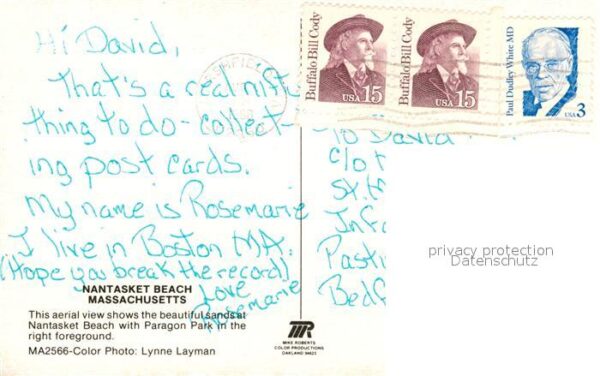 Hi David,
That's a real nifty
thing to do - collect-
ing post cards.
My name is Rosemarie
I live in Boston MA.
(Hope you break the record!)
Love
Rosemarie
NANTASKET BEACH
MASSACHUSETTS
This aerial view shows the beautiful sands at
Nantasket Beach with Paragon Park in the
right foreground.
MA2566-Color Photo: Lynne Layman
MR
MIKE ROBERTS
COLOR PRODUCTIONS
OAKLAND 94623
Buffalo Bill Cody
USA 15
Buffalo Bill Cody
USA 15
Paul Dudley White MD
USA 3
To David
c/o
St.
Inf
Past
Bedf
privacy protection
Datenschutz